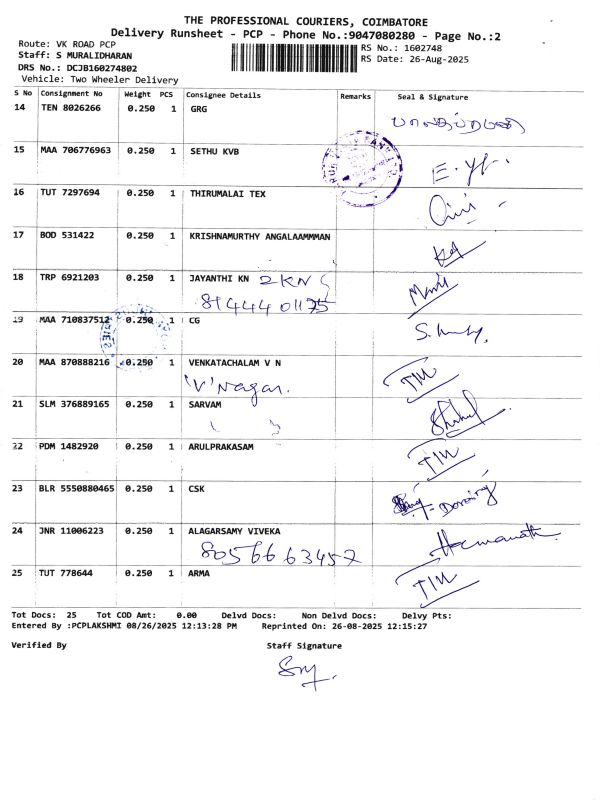 THE PROFESSIONAL COURIERS, COIMBATORE
Delivery Runsheet - PCP - Phone No.:9047080280 - Page No.:2
Route: VK ROAD PCP
Staff: S MURALIDHARAN
DRS No.: DCJB160274802
Vehicle: Two Wheeler Delivery
RS No.: 1602748
RS Date: 26-Aug-2025
S No Consignment No Weight PCS Consignee Details Remarks Seal & Signature
14 TEN 8026266 0.250 1 GRG
15 MAA 706776963 0.250 1 SETHU KVB
16 TUT 7297694 0.250 1 THIRUMALAI TEX
17 BOD 531422 0.250 1 KRISHNAMURTHY ANGALAAMMMAN
18 TRP 6921203 0.250 1 JAYANTHI KN 2KN
8144401175
19 MAA 710837512 0.250 1 CG
20 MAA 870888216 0.250 1 VENKATACHALAM V N
'V' Nagar.
21 SLM 376889165 0.250 1 SARVAM
22 PDM 1482920 0.250 1 ARULPRAKASAM
23 BLR 5550880465 0.250 1 CSK
24 JNR 11006223 0.250 1 ALAGARSAMY VIVEKA
8056663457
25 TUT 778644 0.250 1 ARMA
Tot Docs: 25 Tot COD Amt: 0.00 Delvd Docs: Non Delvd Docs: Delvy Pts:
Entered By :PCPLAKSHMI 08/26/2025 12:13:28 PM Reprinted On: 26-08-2025 12:15:27
Verified By Staff Signature